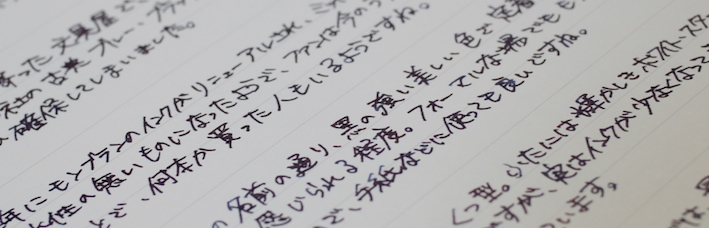 あった文具屋で
社の古典ブルー・ブラッ
確保してしまいました。
年にモンブランのインクがリニューアルされ、
性の無いものになったようで、ファンは今のう
とで、何本か買った人もいるようですね。
の名前の通り、黒の強い美しい色で定着
感じられる程度。フォーマルな場でも
で、手紙などに使っても良いですね。
くつ型。ふたには輝かしきホワイトスター
ですが、実はインクが少なくなって
います。